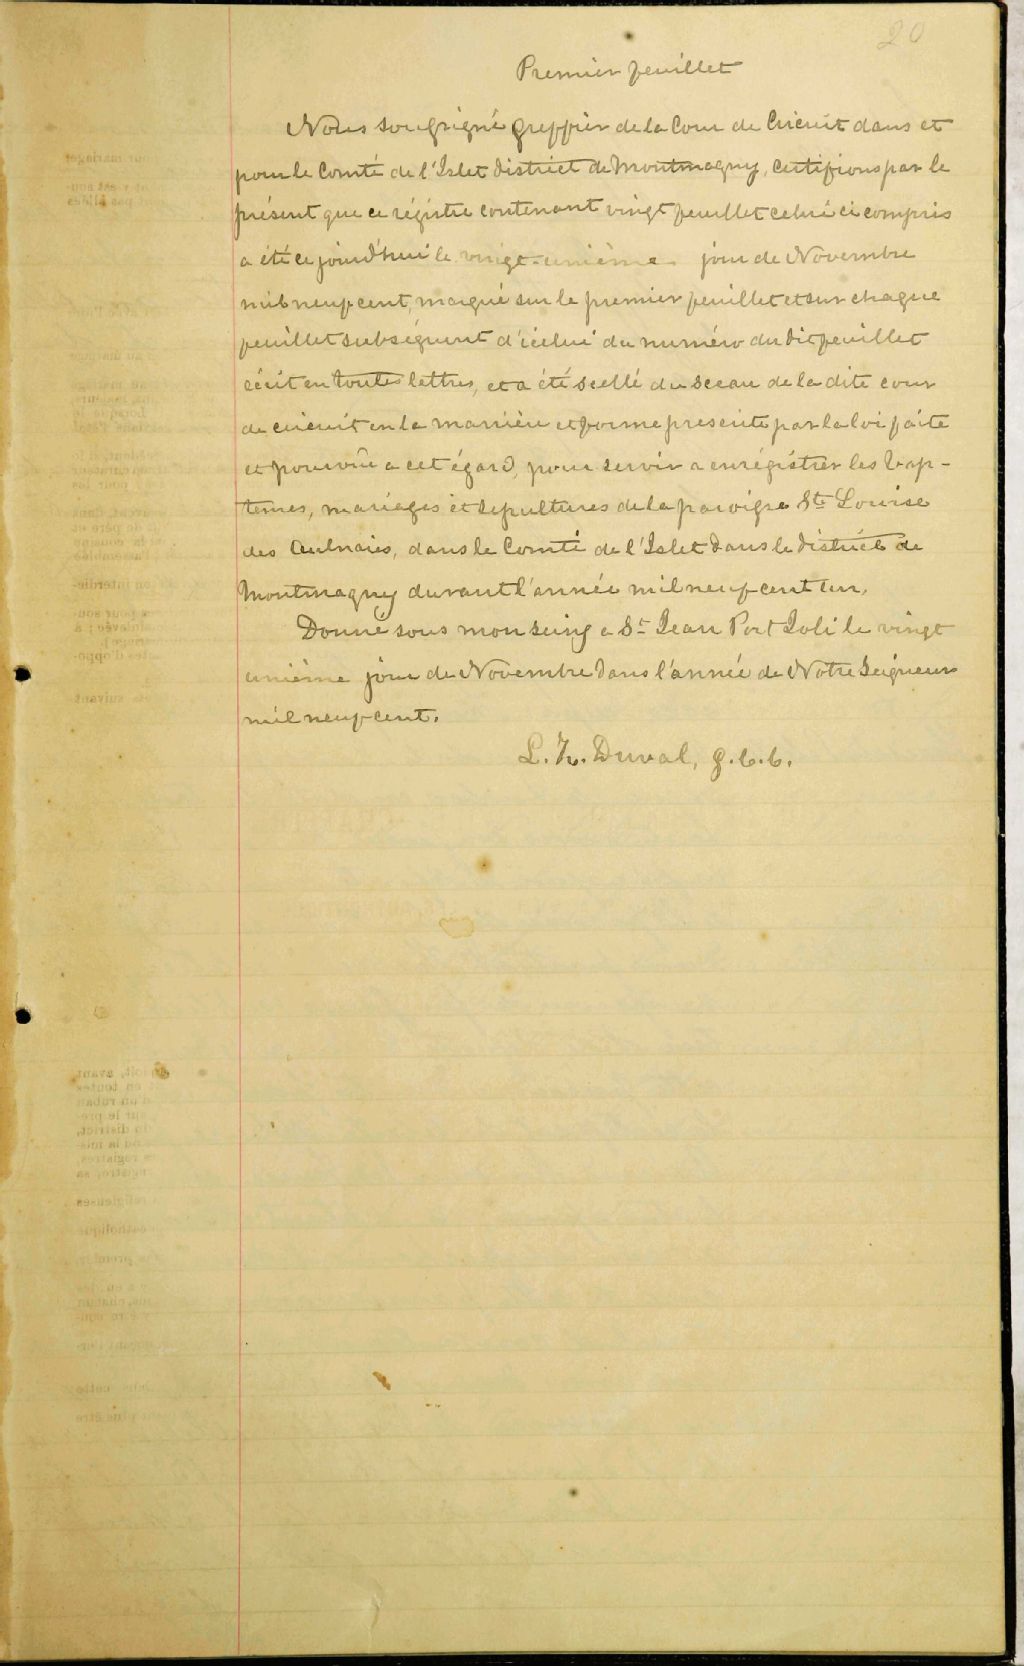 20
Premier feuillet
Nous soussigné greffier de la Cour de Circuit dans et
pour le Comté de l'Islet district de Montmagny, certifions par le
présent que ce régistre contenant vingt feuillet celui ci compris
a été ce jourd'hui le vingt-unième jour de Novembre
mil neuf cent, marqué sur le premier feuillet et sur chaque
feuillet subséquent d'icelui du numéro du dit feuillet
écrit en toutes lettres, et a été scellé du sceau de la dite cour
de circuit en la manière et forme prescrite par la loi faite
et pourvûe a cet égard, pour servir a enrégistrer les bap-
temes, mariages et sepultures de la paroisse Ste Louise
des Aulnaies, dans le Comté de l'Islet dans le district de
Montmagny durant l'année mil neuf cent un.
Donné sous mon seing a St Jean Port Joli le vingt
unième jour de Novembre dans l'année de Notre Seigneur
mil neuf cent.
Duval, g.c.c.